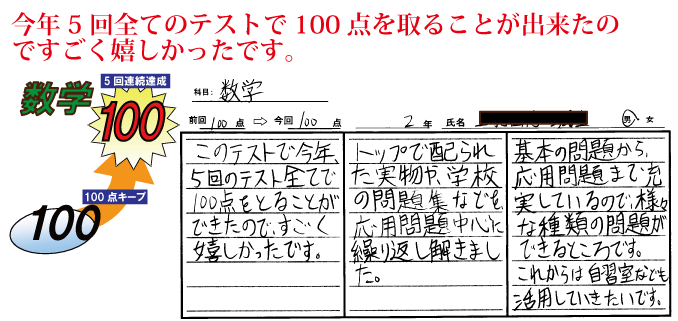 今年５回全てのテストで100点を取ることが出来たの
ですごく嬉しかったです。
数学
5回連続達成
100
100点キープ
100
科目: 数学
前回 100 点 ⇨ 今回 100 点 2 年 氏名 男・女
このテストで今年、
5回のテスト全てで
100点をとることが
できたので、すごく
嬉しかったです。
トップで配られ
た実物や、学校
の問題集などを
応用問題中心に
繰り返し解きまし
た。
基本の問題から、
応用問題まで充
実しているので、様々
な種類の問題が
できるところです。
これからは自習室なども
活用していきたいです。